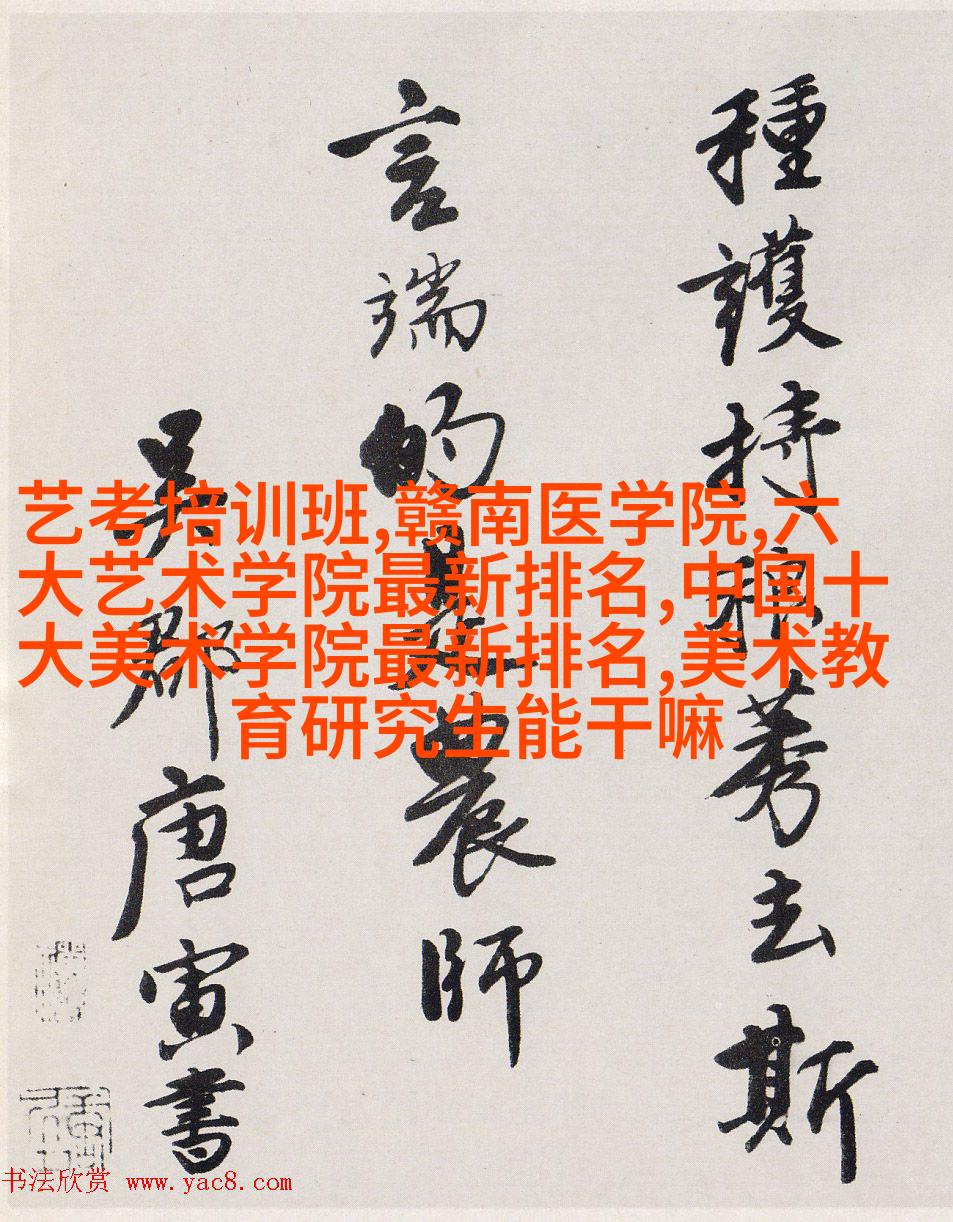 種護持稂莠去斯
言端的是農師
吳郡唐寅書
艺考培训班,赣南医学院,六
大艺术学院最新排名,中国十
大美术学院最新排名,美术教
育研究生能干嘛
书法欣赏 www.yac8.com